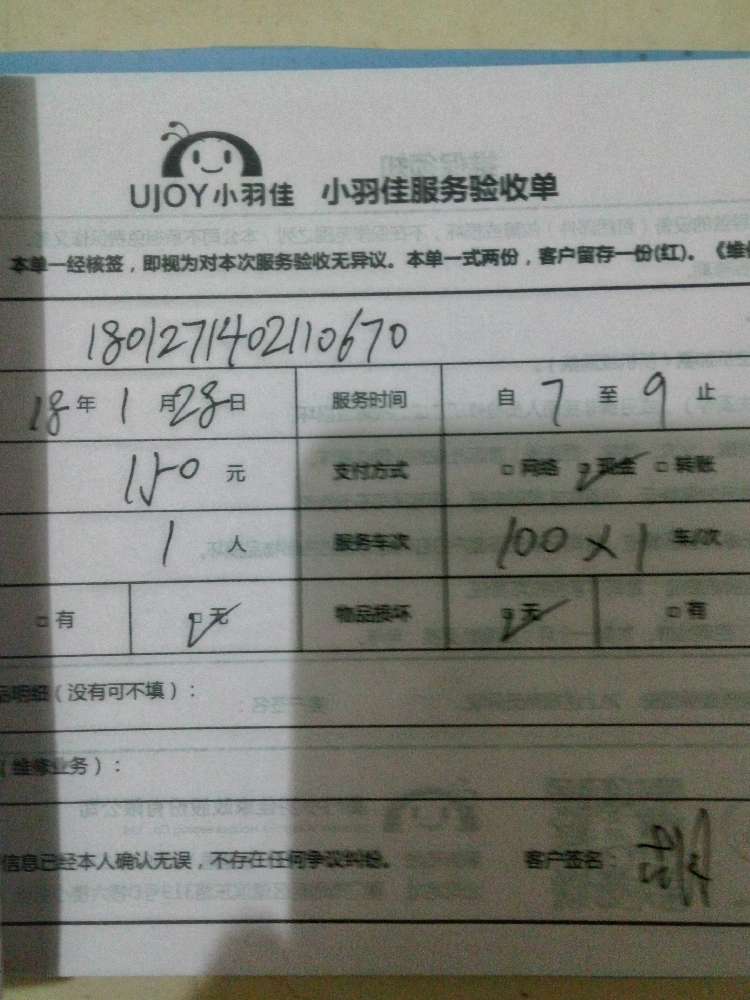 UJOY小羽佳 小羽佳服务验收单
本单一经核签，即视为对本次服务验收无异议。本单一式两份，客户留存一份(红)。《维
1801271402110670
18年1月28日 服务时间 自7至9止
150元 支付方式 □网络 □现金 □转账
1人 服务车次 100×1车/次
□有 □无 物品损坏 □无 □有
品明细（没有可不填）：
（维修业务）：
信息已经本人确认无误，不存在任何争议纠纷。 客户签名：